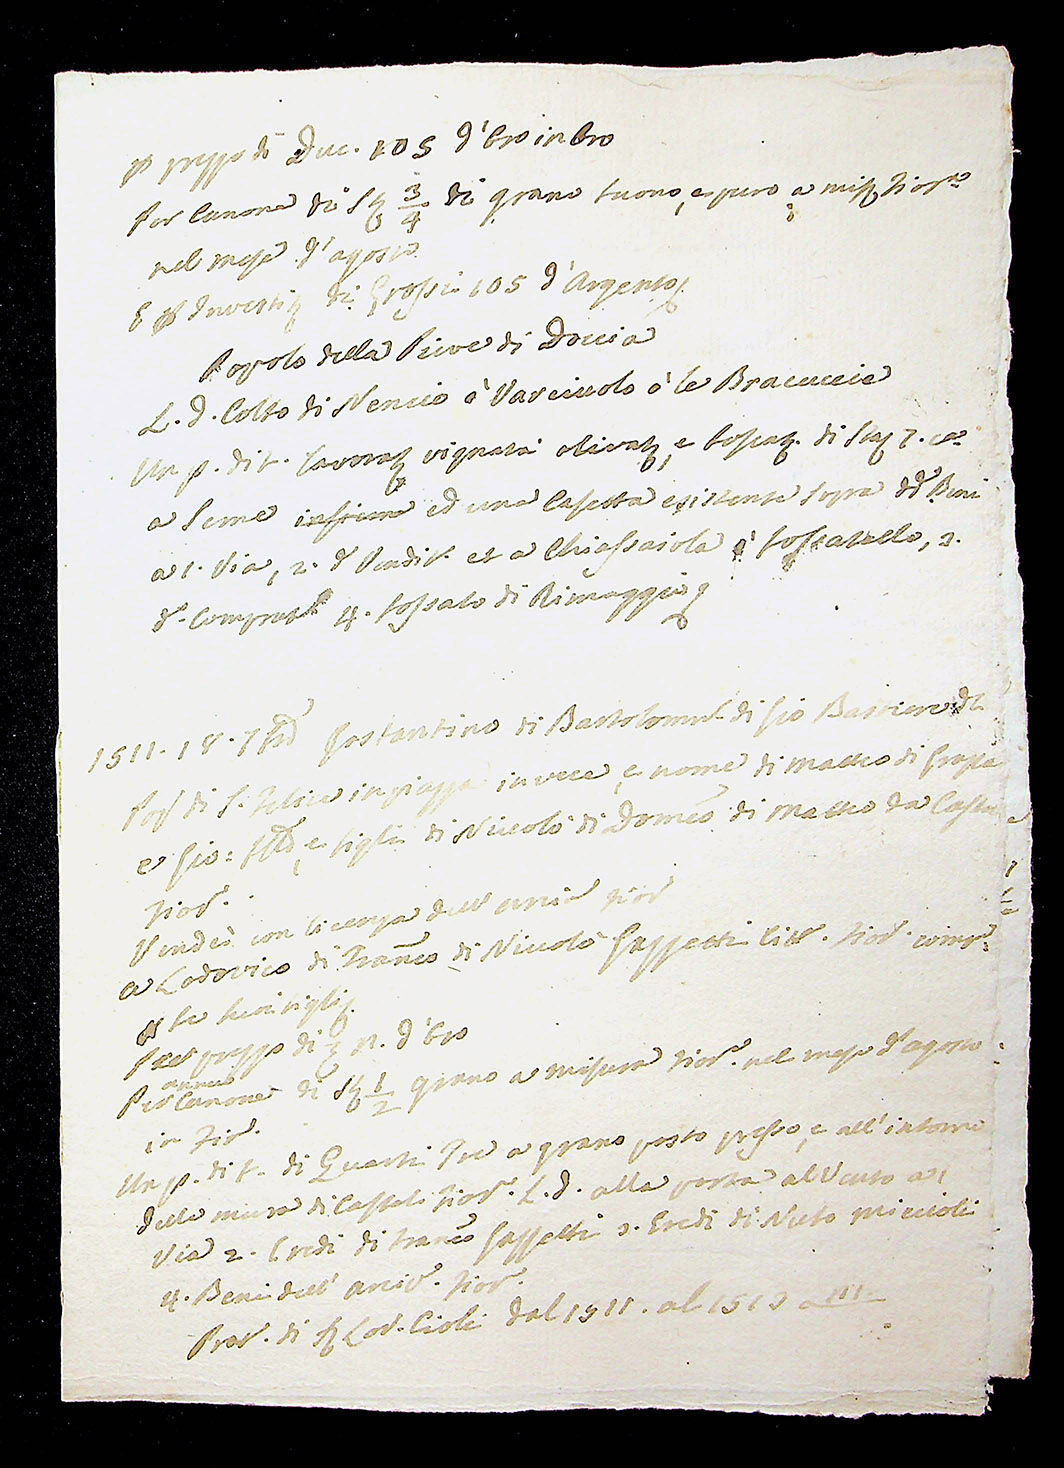 p prezzo di Duc. 105 d'Oro in Oro
Per Canone di St 3/4 di grano buono, e puro a mis Fior.
nel mese d'agosto
E p Investi di Grossi 105 d'Argento
Popolo della Pieve di Doccia
L. d. Colto di Nencio ò Varciuolo ò le Bracuccie
Un p. di t. lavorat vignata olivat, e boscat. di Sta 7. ca
a Seme insieme ed una Casetta esistente sopra dd Beni
a 1. Via, 2. d Vendit. et a Chiassaiola ò fossatello, 3.
d. Comprat 4. fossato di Rimaggio
1511. 18. 7bre Costantino di Bartolomeo di Gio
Pop di S. Felice in piazza in vece, e nome di Matteo di
e Gio: , e figli di Niccolò di Domco di Matteo da Castel
Fior.
Vendè con licenza dell' Arciv Fior
a Lodovico di Franco di Niccolò Sassetti Citt. Fior. comp
p se suoi figli
Per prezzo di p. d'Oro
annuo
Per Canone di St 1/2 grano a misura Fior. nel mese d'agosto
in Fior.
Un p. di t. di Quarti Tre a grano posto presso, e all' intorno
delle mura di Castel Fior. L. d. alla porta al Vento a 1
Via 2. Eredi di Franco Sassetti 3. Eredi di Nuto Miccioli
4. Beni dell' Arciv. Fior.
Prot. di S Lod. Cioli dal 1511. al 1513